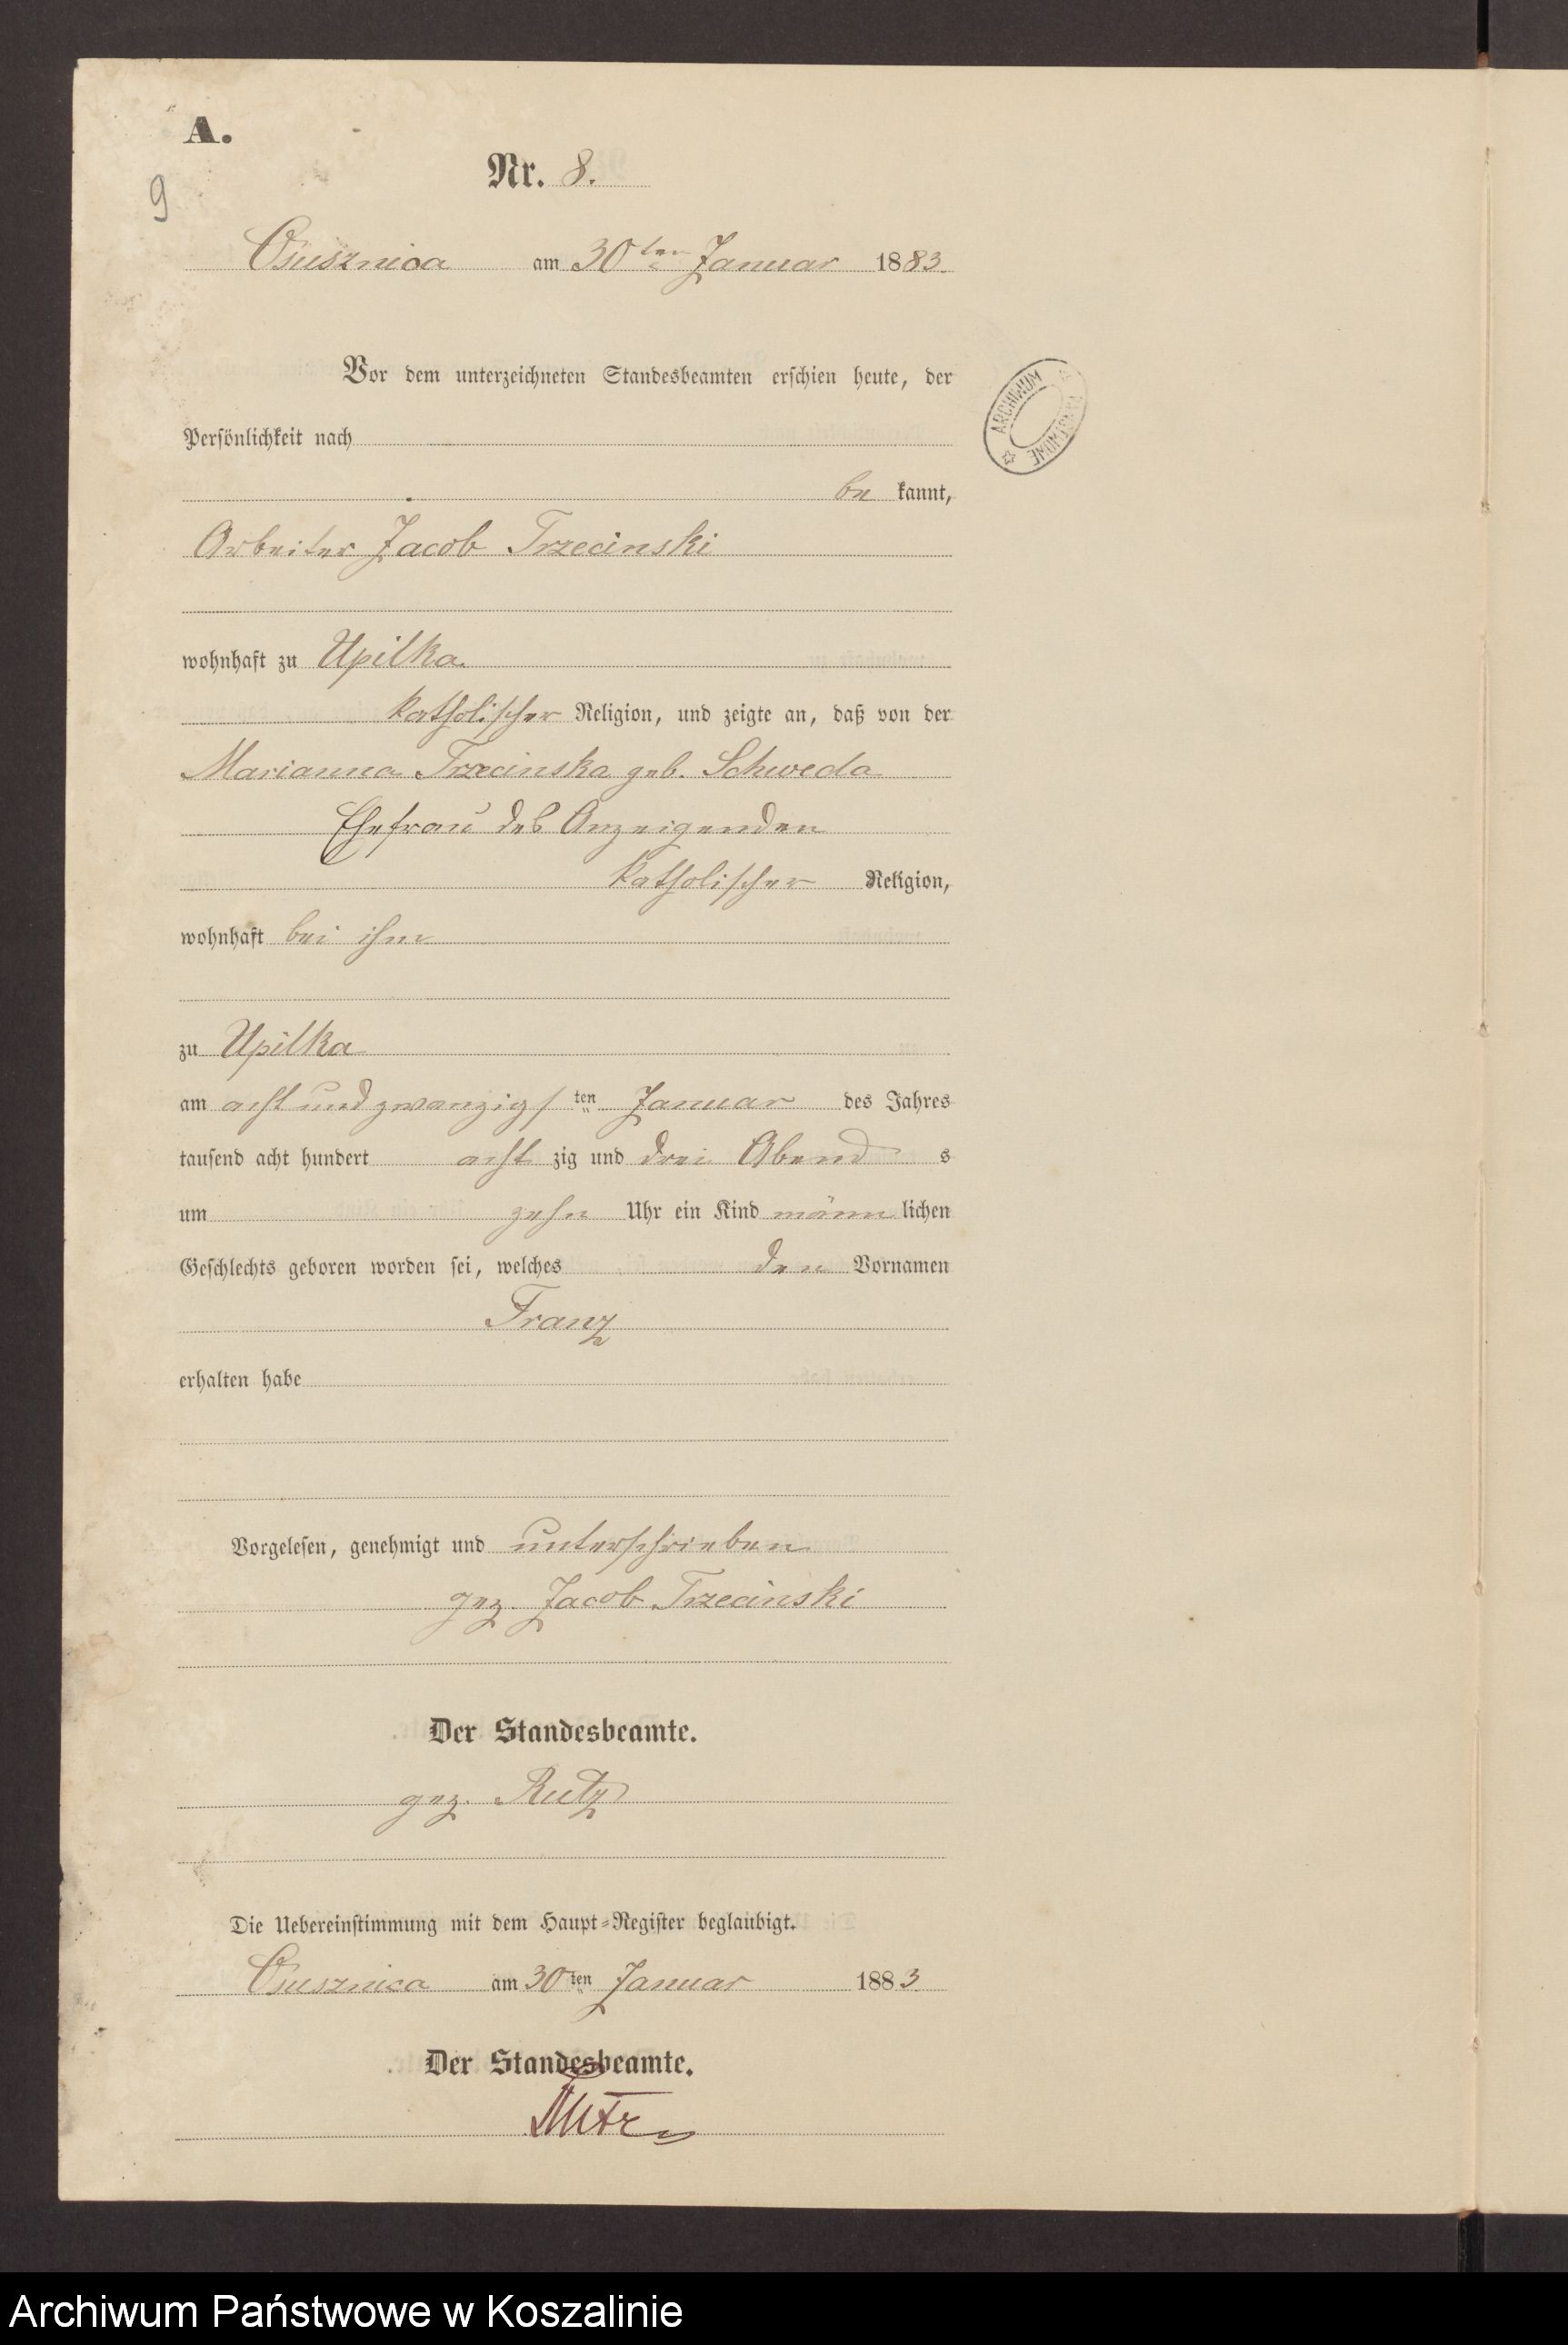 A.
Nr. 8.
9
Osusznica am 30ten Januar 1883.
Vor dem unterzeichneten Standesbeamten erschien heute, der
Persönlichkeit nach
be kannt,
Arbeiter Jacob Trzecinski
wohnhaft zu Upilka
katholischer Religion, und zeigte an, daß von der
Marianna Trzecinska geb. Schweda
Ehefrau des Anzeigenden
katholischer Religion,
wohnhaft bei ihm
zu Upilka
am acht und zwanzigsten Januar des Jahres
tausend acht hundert acht zig und drei Abend s
um zehn Uhr ein Kind männ lichen
Geschlechts geboren worden sei, welches den Vornamen
Franz
erhalten habe
Vorgelesen, genehmigt und unterschrieben
gez. Jacob Trzecinski
Der Standesbeamte.
gez. Rutz
Die Uebereinstimmung mit dem Haupt-Register beglaubigt.
Osusznica am 30ten Januar 1883.
Der Standesbeamte.
Rutz
ARCHIWUM
Archiwum Państwowe w Koszalinie